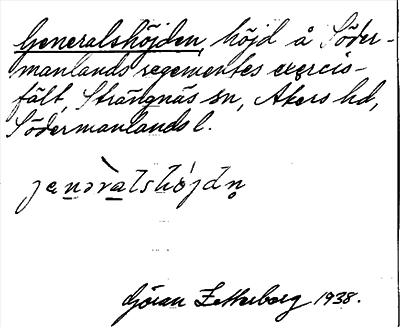 Generalshöjden, höjd å Söder-
manlands regementes exercis-
fält, Strängnäs sn, Åkers hd,
Södermanlands l.
jenərалshöjdn̥
Göran Zetterborg 1938.